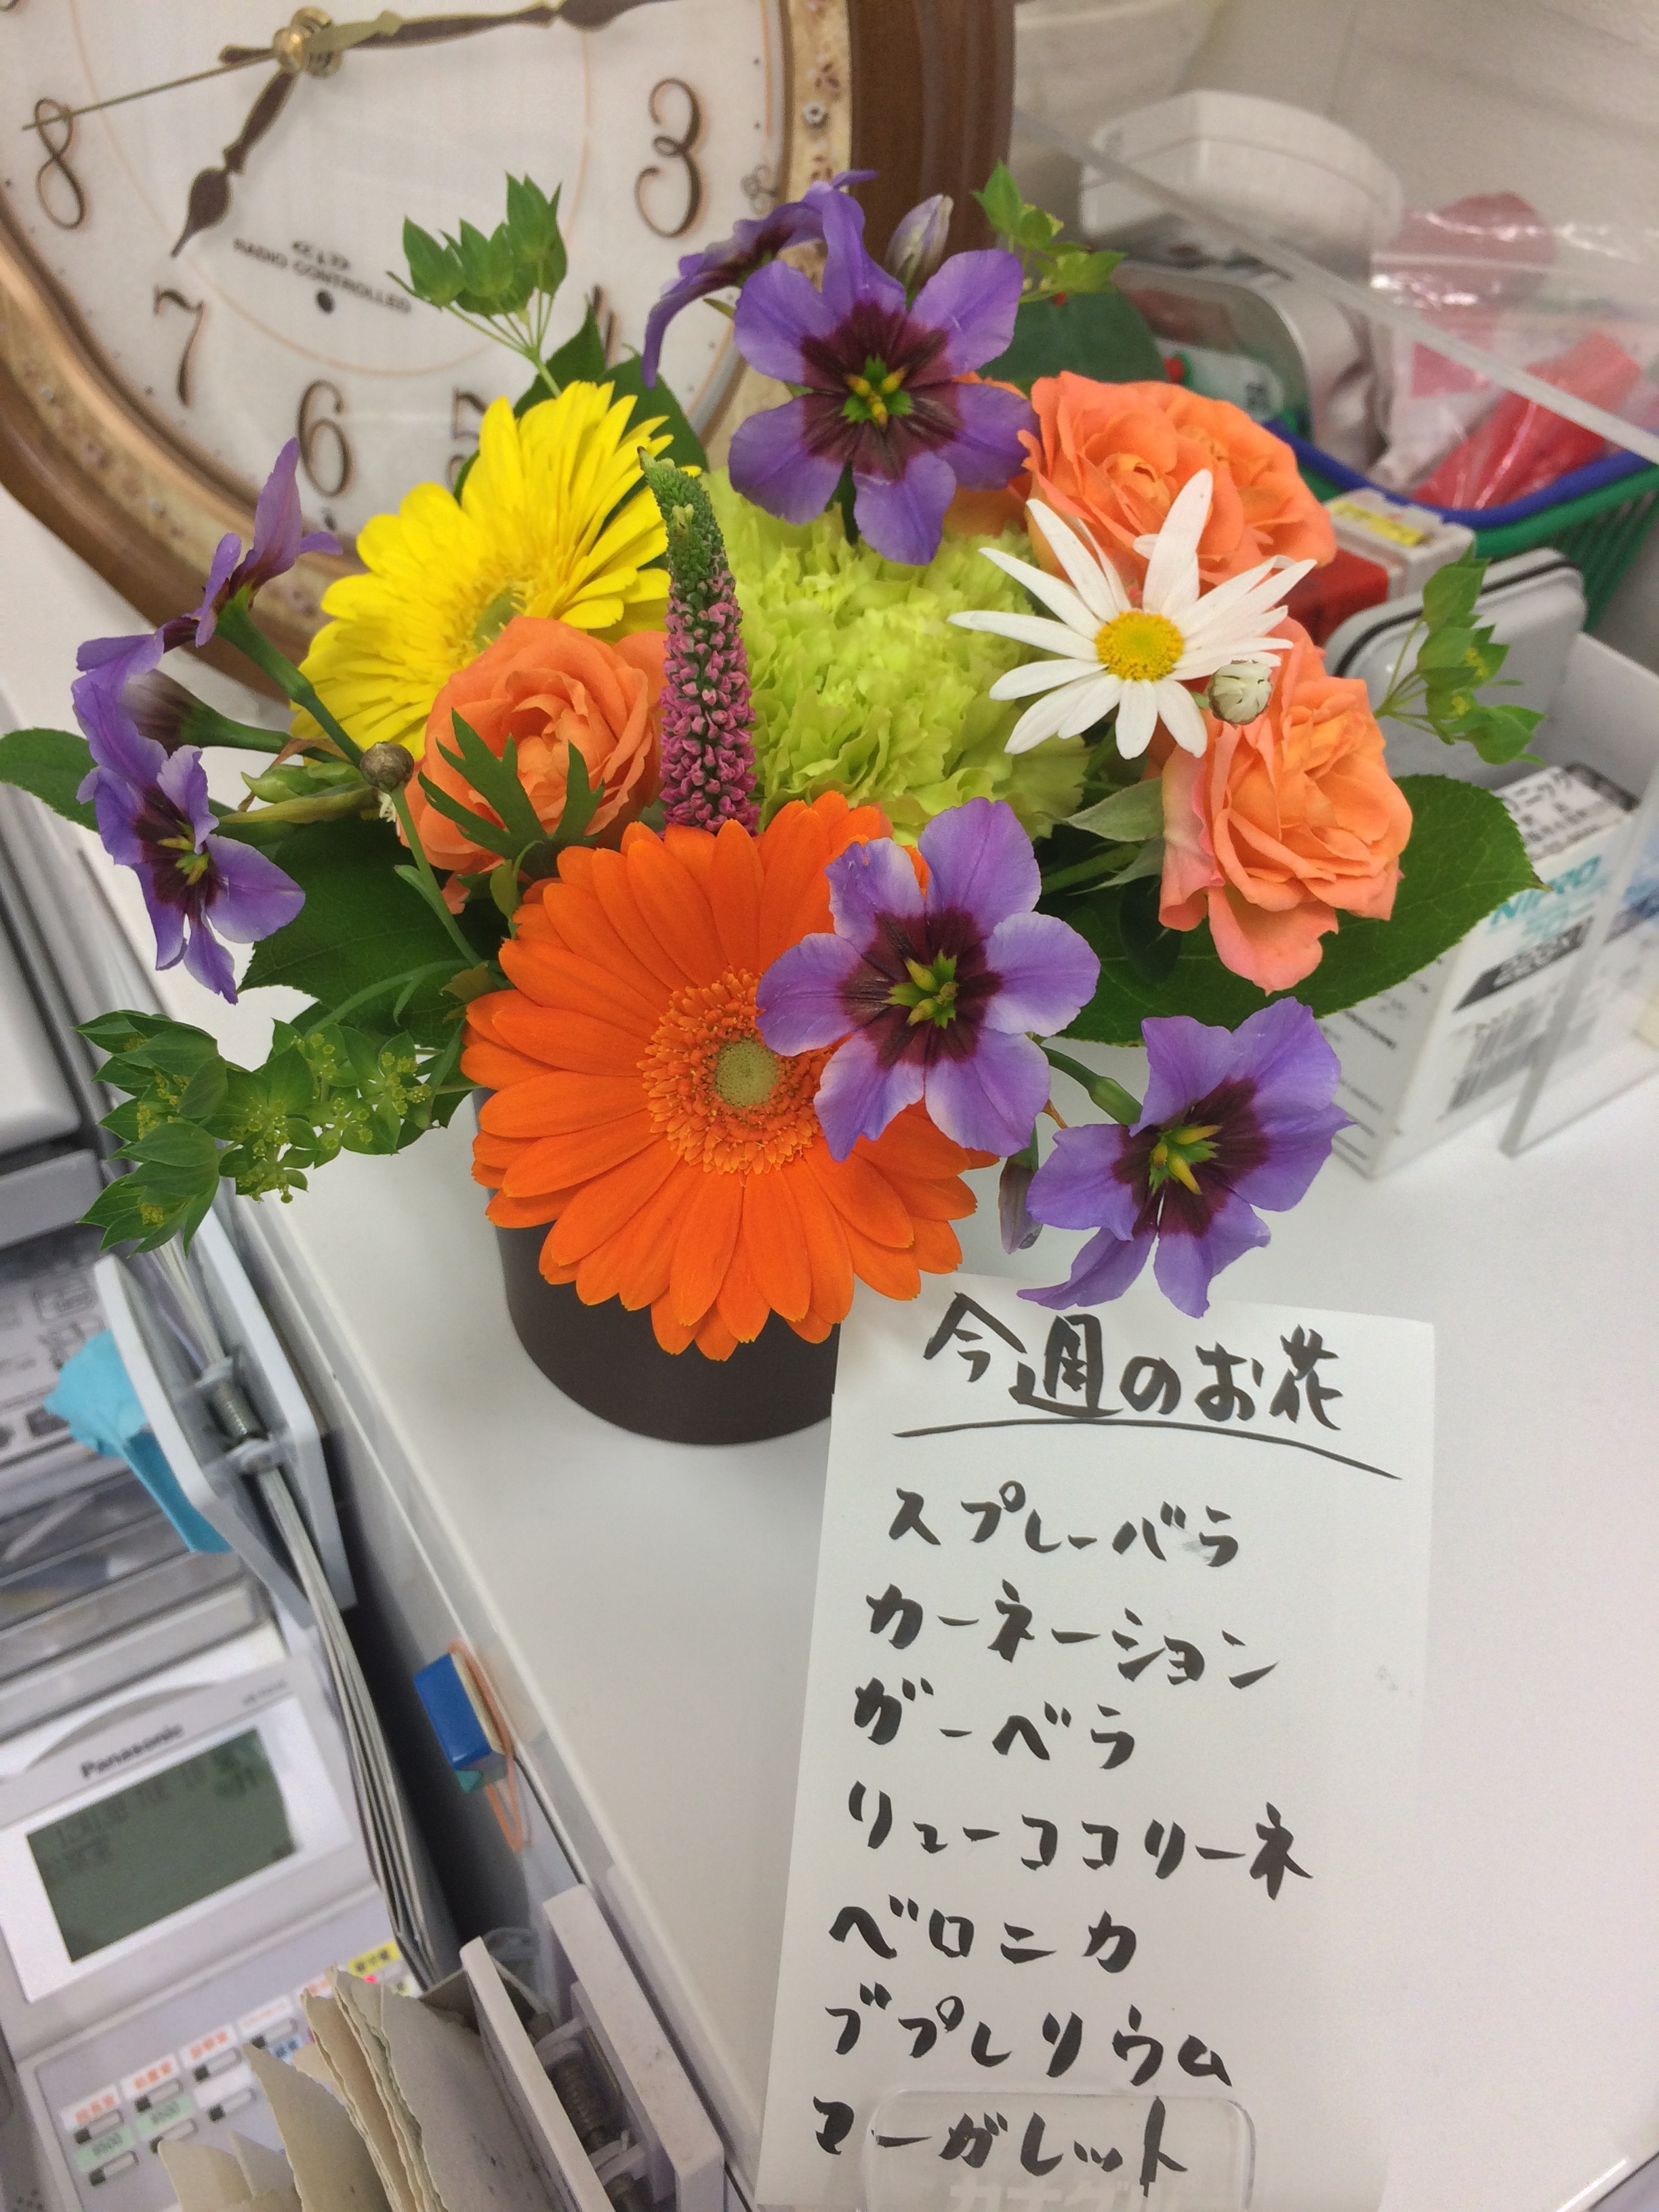 8
3
7
6
5
RADIO CONTROLLED
NIPRO
今週のお花
スプレーバラ
カーネーション
ガーベラ
リューココリーネ
ベロニカ
ブプレリウム
マーガレット
Panasonic